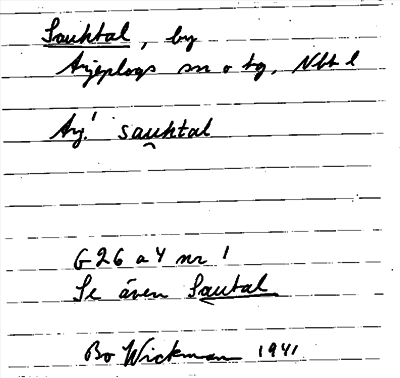 Sauhtal, by
Arjeplogs sn o tg, Nbt l
Arj.' sauhtal
G26 a 4 nr 1
Se även Sautal
Bo Wickman 1941